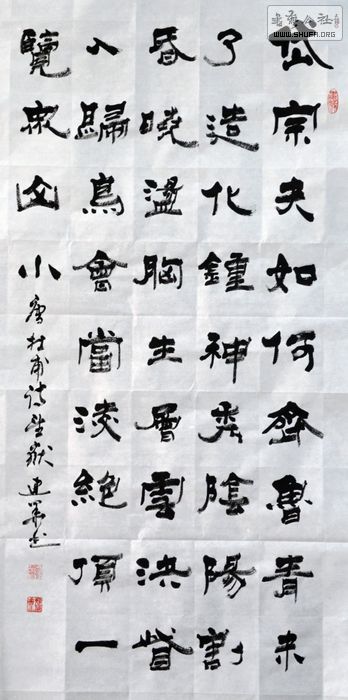 岱宗夫如何齊魯青未
了造化鍾神秀陰陽割
昏曉盪胸生層雲決眥
入歸鳥會當淩絕頂一
覽眾山小
唐杜甫诗望嶽
WWW.SHUFA.ORG